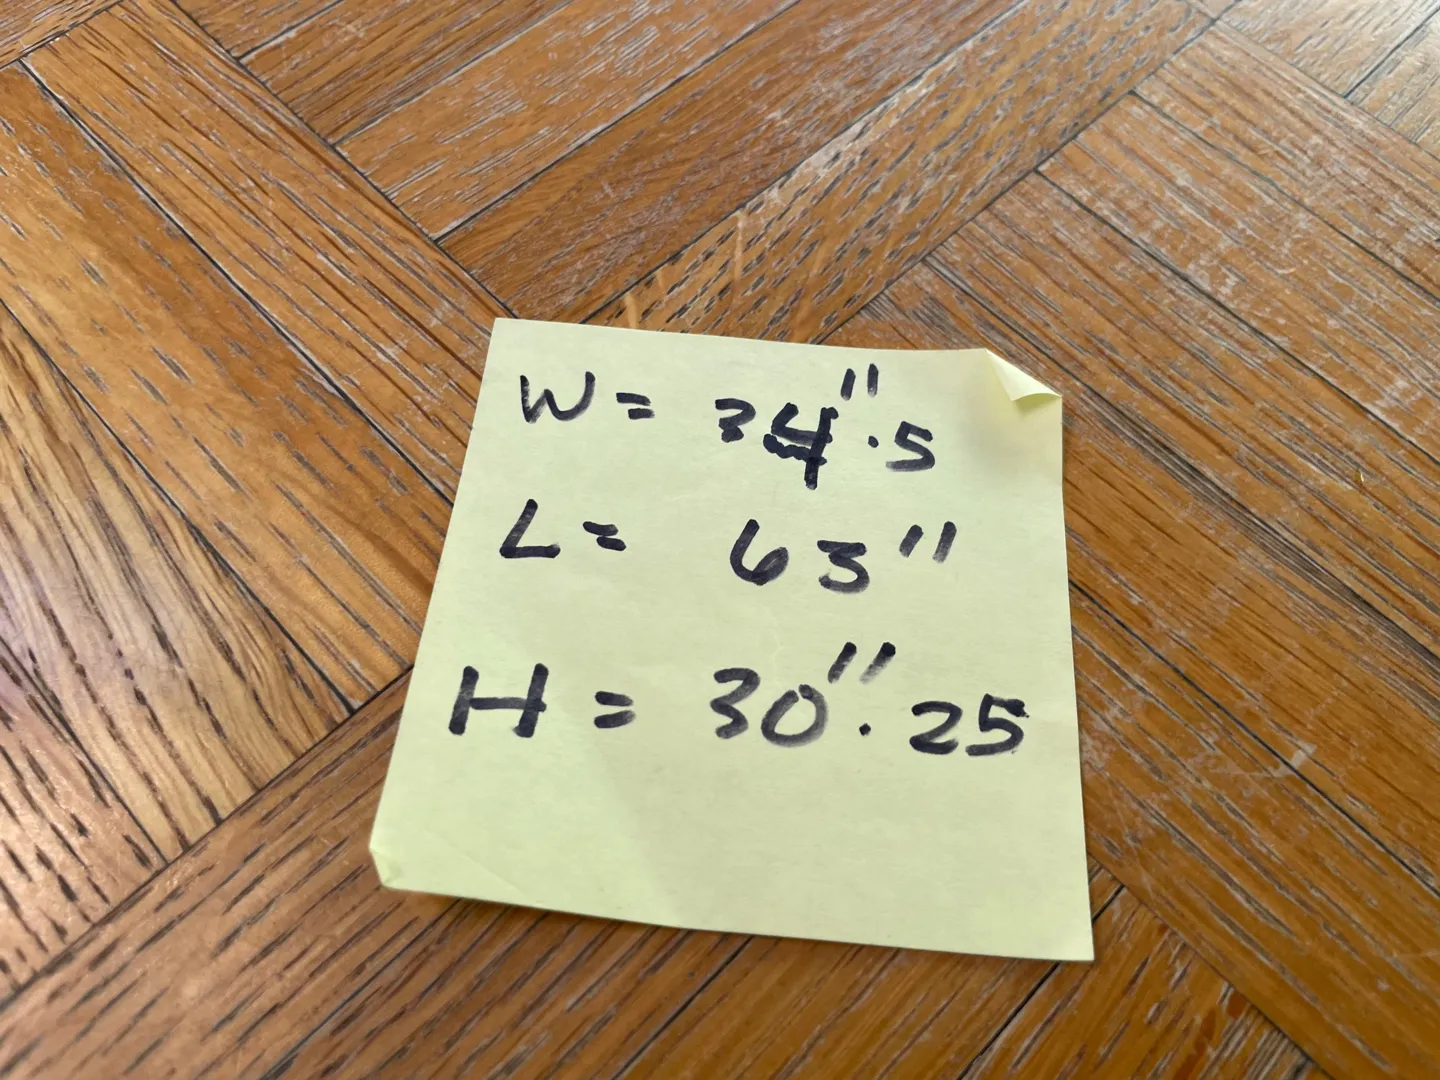 W = 34".5
L = 63"
H = 30".25